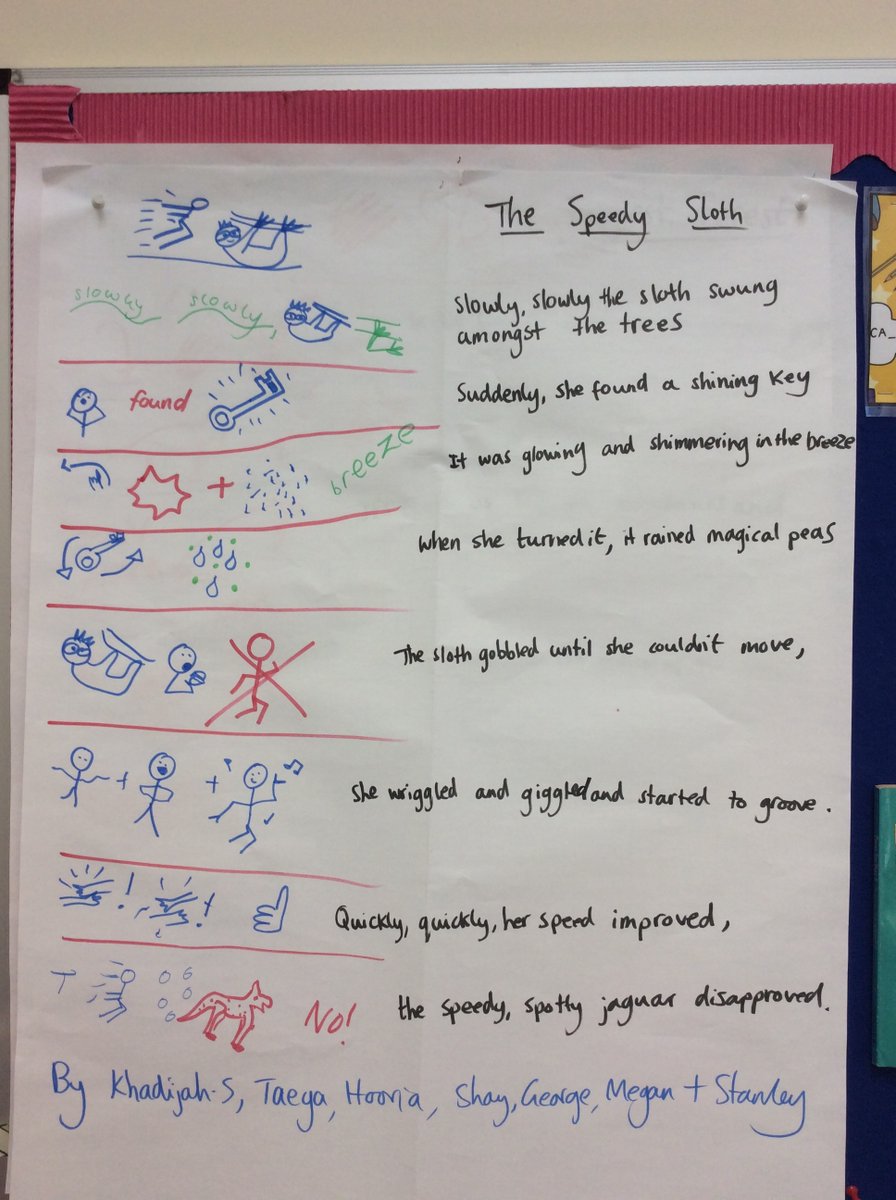 The Speedy Sloth
slowly slowly,
slowly, slowly the sloth swung
amongst the trees
found
Suddenly, she found a shining key
breeze
It was glowing and shimmering in the breeze
when she turned it, it rained magical peas
The sloth gobbled until she couldn't move,
she wriggled and giggled and started to groove.
Quickly, quickly, her speed improved,
T
No!
the speedy, spotty jaguar disapproved.
By Khadijah-S, Taeya, Hooria, Shay, George, Megan + Stanley
CA_